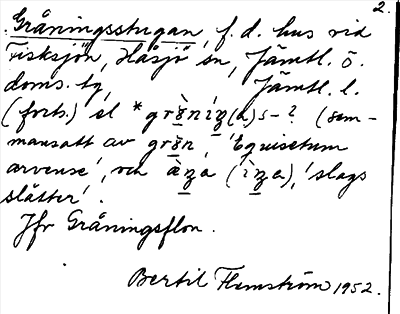 2.
Gråningsstugan, f.d. hus vid
Fisksjön, Håsjö sn, Jämtl. ö.
doms. tg, Jämtl. l.
(forts.) el *grə̀nı̀ʒ(a)s-? (sam-
mansatt av grə̀n, 'Equisetum
arvense', och æ̀ʒa (ı̀ʒa), 'slags
slåtter'.
Jfr Gråningsflon.
Bertil Flemström 1952.